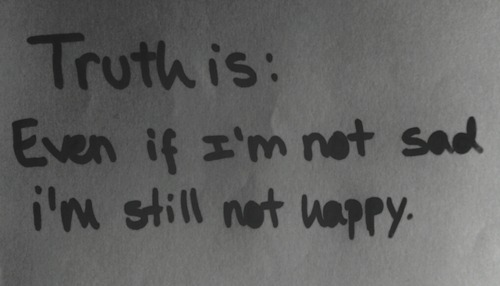 Truth is:
Even if I'm not sad
i'm still not happy.